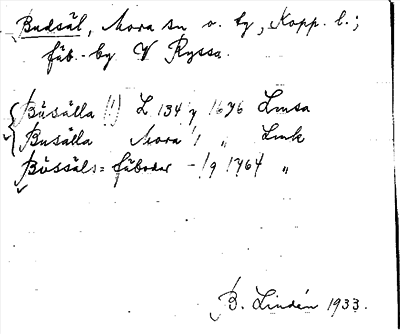 Budsäl, Mora sn o. tg, Kopp. l.;
fäb.-by V Ryssa.
Büsälla (!) L 134 7 1676 Lmsa
Busälla Mora 1 " Lmk
Büssäls=fäbodar - 19 1764 "
B. Lindén 1933.